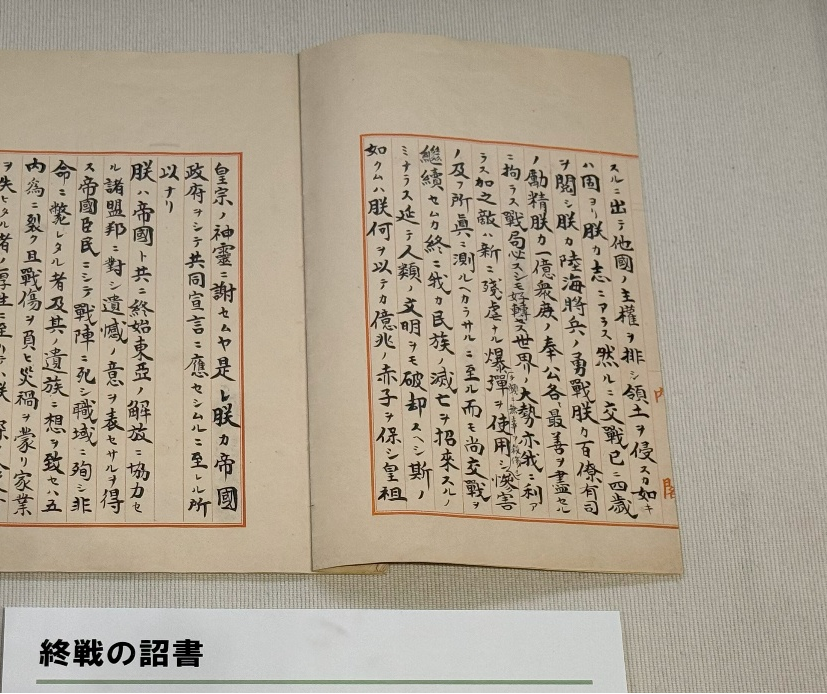 内閣
スルニ出テ他國ノ主權ヲ排シ領土ヲ侵スカ如キ
ハ固ヨリ朕カ志ニアラス然ルニ交戰已ニ四歳
ヲ閲シ朕カ陸海將兵ノ勇戰朕カ百僚有司
ノ勵精朕カ一億衆庶ノ奉公各〻最善ヲ盡セル
ニ拘ラス戰局必スシモ好轉セス世界ノ大勢亦我ニ利ア
ラス加之敵ハ新ニ殘虐ナル爆彈ヲ使用シ慘害
頻ニ無辜ヲ殺傷シ
ノ及フ所眞ニ測ルヘカラサルニ至ル而モ尚交戰ヲ
繼續セムカ終ニ我カ民族ノ滅亡ヲ招來スルノ
ミナラス延テ人類ノ文明ヲモ破却スヘシ斯ノ
如クムハ朕何ヲ以テカ億兆ノ赤子ヲ保シ皇祖
皇宗ノ神靈ニ謝セムヤ是レ朕カ帝國
政府ヲシテ共同宣言ニ應セシムルニ至レル所
以ナリ
朕ハ帝國ト共ニ終始東亞ノ解放ニ協力セ
ル諸盟邦ニ對シ遺憾ノ意ヲ表セサルヲ得
ス帝國臣民ニシテ戰陣ニ死シ職域ニ殉シ非
命ニ斃レタル者及其ノ遺族ニ想ヲ致セハ五
内爲ニ裂ク且戰傷ヲ負ヒ災禍ヲ蒙リ家業
ヲ失ヒタル者ノ厚生ニ至リテハ朕
終戦の詔書